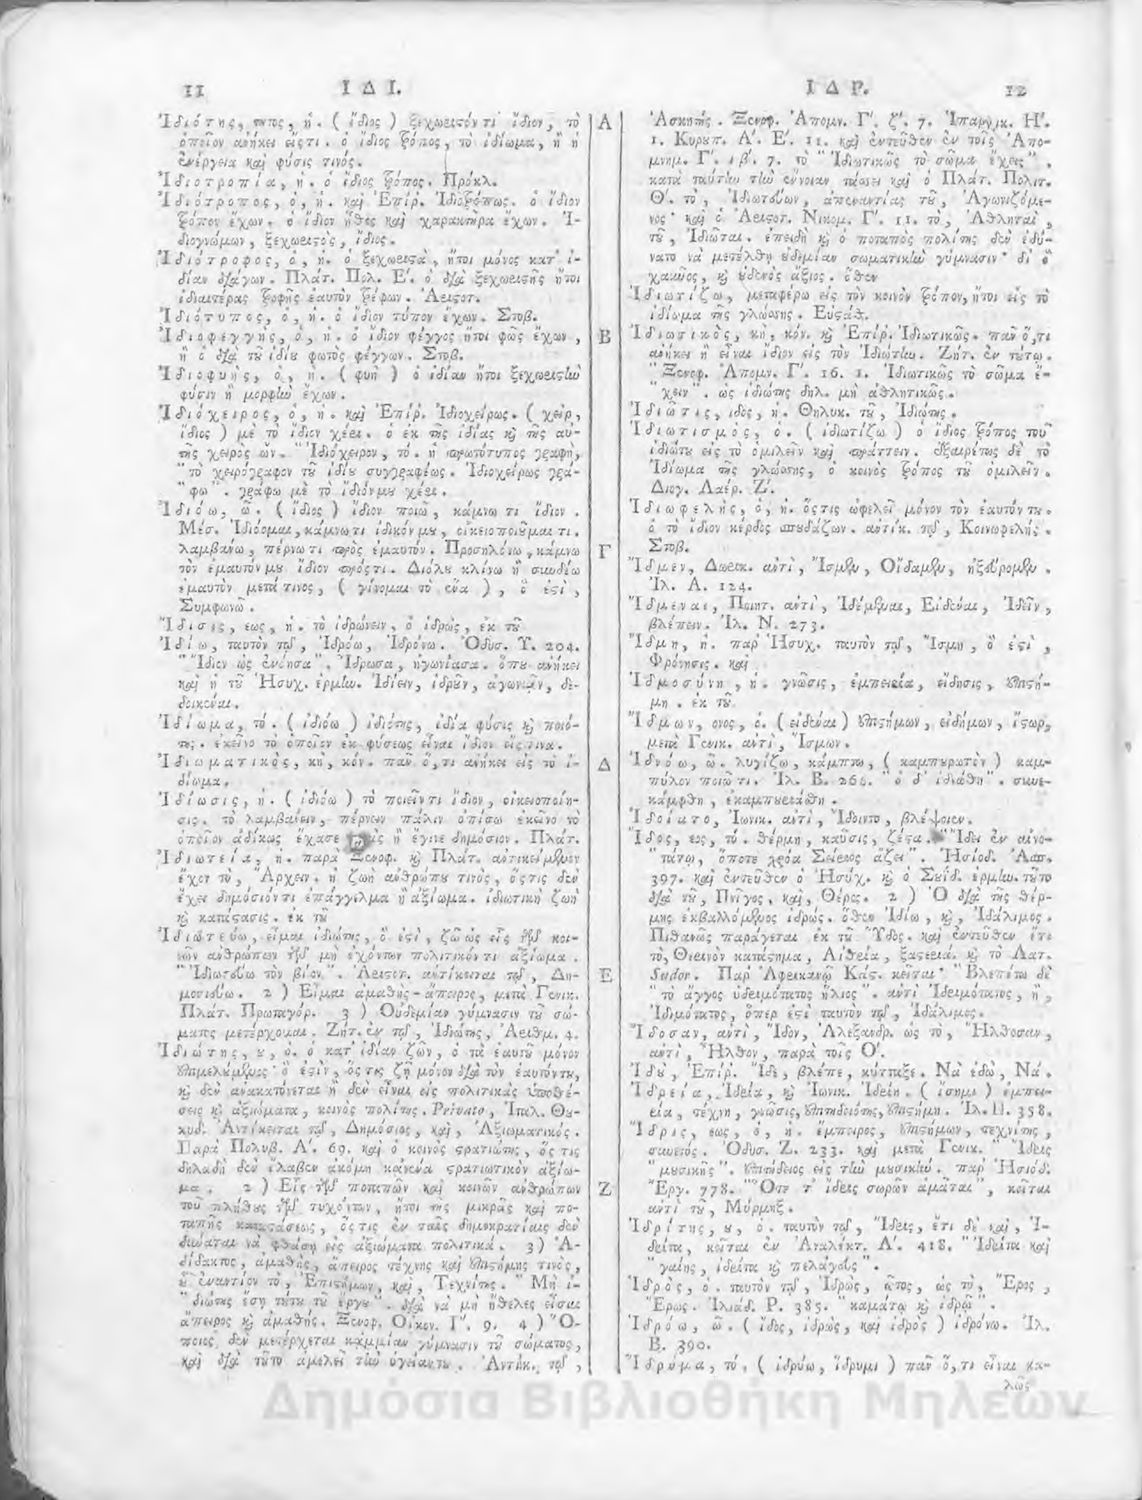 11 Ι Δ Ι.
Ἰδιότης, ητος, ἡ. ( ἴδιος ) ξεχωριστόν τι ἴδιον, τὸ
ὁποῖον ἀνήκει εἴς τι. ὁ ἴδιος τρόπος, τὸ ἰδίωμα, ἢ ἡ
ἐνέργεια καὶ φύσις τινός.
Ἰδιοτροπία, ἡ. ὁ ἴδιος τρόπος. Πρόκλ.
Ἰδιότροπος, ὁ, ἡ. καὶ Ἐπίρ. Ἰδιοτρόπως. ὁ ἴδιον
τρόπον ἔχων. ὁ ἴδιον ἦθος καὶ χαρακτῆρα ἔχων. Ἰ-
διογνώμων, ξεχωριστὸς, ἴδιος.
Ἰδιότροφος, ὁ, ἡ. ὁ ξεχωριστὰ, ἤτοι μόνος κατ' ἰ-
δίαν διάγων. Πλάτ. Πολ. Ε'. ὁ διὰ ξεχωριστῆς ἤτοι
ἰδιαιτέρας τροφῆς ἑαυτὸν τρέφων. Ἀριστοτ.
Ἰδιότυπος, ὁ, ἡ. ὁ ἴδιον τύπον ἔχων. Στοβ.
Ἰδιοφεγγὴς, ὁ, ἡ. ὁ ἴδιον φέγγος ἤτοι φῶς ἔχων,
ἢ ὁ διὰ τοῦ ἰδίου φωτὸς φέγγων. Στοβ.
Ἰδιοφυὴς, ὁ, ἡ. ( φυὴ ) ὁ ἰδίαν ἤτοι ξεχωριστὴν
φύσιν ἢ μορφὴν ἔχων.
Ἰδιόχειρος, ὁ, ἡ. καὶ Ἐπίρ. Ἰδιοχείρως. ( χεὶρ,
ἴδιος ) μὲ τὸ ἴδιον χέρι. ὁ ἐκ τῆς ἰδίας καὶ τῆς αὐ-
τῆς χειρὸς ὤν. "Ἰδιόχειρον, τό. ἡ πρωτότυπος γραφὴ,
"τὸ χειρόγραφον τοῦ ἰδίου συγγραφέως. Ἰδιοχείρως γρά-
"φω". γράφω μὲ τὸ ἴδιόν μου χέρι.
Ἰδιόω, ῶ. ( ἴδιος ) ἴδιον ποιῶ, κάμνω τι ἴδιον.
Μέσ. Ἰδιόομαι, κάμνω τι ἰδικόν μου, οἰκειοποιοῦμαί τι.
λαμβάνω, πέρνω τι πρὸς ἐμαυτόν. Προσηλόνω, κάμνω
τὸν ἐμαυτόν μου ἴδιον πρός τι. Διόλου κλίνω ἢ συνδέω
ἐμαυτὸν μετά τινος, ( γίνομαι τὸ ἕνα ), ὅ ἐστι,
Συμφωνῶ.
Ἴδισις, εως, ἡ. τὸ ἱδρώνειν, ὁ ἱδρώς, ἐκ τοῦ
Ἰδίω, ταυτὸν τῷ, Ἱδρόω, Ἱδρόνω. Ὀδυσ. Υ. 204.
"Ἴδιον ὡς ἐνόησα". Ἵδρωσα, ἠγωνίασα. ὅπου ἀνήκει
καὶ ἡ τοῦ Ἡσυχ. ἑρμην. Ἰδίειν, ἱδροῦν, ἀγωνιᾷν, δε-
δοικέναι.
Ἰδίωμα, τό. ( ἰδιόω ) ἰδιότης, ἰδία φύσις καὶ ποιό-
της. ἐκεῖνο τὸ ὁποῖον ἐκ φύσεως εἶναι ἴδιον εἴς τινα.
Ἰδιωματικὸς, κὴ, κόν. πᾶν ὅ,τι ἀνήκει εἰς τὸ ἰ-
δίωμα.
Ἰδίωσις, ἡ. ( ἰδιόω ) τὸ ποιεῖν τι ἴδιον, οἰκειοποίη-
σις. τὸ λαμβάνειν, πέρνειν πάλιν ὀπίσω ἐκεῖνο τὸ
ὁποῖον ἀδίκως ἔχασε ἢ ἔγινε δημόσιον. Πλάτ.
Ἰδιωτεία, ἡ. παρὰ Ξενοφ. καὶ Πλάτ. ἀντικείμενον
ἔχει τὸ, Ἄρχειν. ἡ ζωὴ ἀνθρώπου τινὸς, ὅςτις δὲν
ἔχει δημόσιόν τι ἐπάγγελμα ἢ ἀξίωμα. ἰδιωτικὴ ζωὴ
καὶ κατάστασις. ἐκ τοῦ
Ἰδιωτεύω, εἶμαι ἰδιώτης, ὅ ἐστι, ζῶ ὡς εἷς τῶν κοι-
νῶν ἀνθρώπων τῶν μὴ ἐχόντων πολιτικόν τι ἀξίωμα.
"Ἰδιωτεύω τὸν βίον". Ἀριστοτ. ἀντίκειται τῷ, Δη-
μοσιεύω. 2 ) Εἶμαι ἀμαθὴς - ἄπειρος, μετὰ Γενικ.
Πλάτ. Πρωταγόρ. 3 ) Οὐδεμίαν γύμνασιν τοῦ σώ-
ματος μετέρχομαι. Ζήτ. ἐν τῷ, Ἰδιώτης, Ἀριθμ. 4.
Ἰδιώτης, ου, ὁ. ὁ κατ' ἰδίαν ζῶν, ὁ τὰ ἑαυτοῦ μόνον
ἐπιμελούμενος· ὅ ἐστιν, ὅςτις ζῇ μόνον διὰ τὸν ἑαυτόν του,
καὶ δὲν ἀνακατόνεται ἢ δὲν εἶναι εἰς πολιτικὰς ὑποθέ-
σεις καὶ ἀξιώματα, κοινὸς πολίτης. Privato, Ἰταλ. Θου-
κυδ. Ἀντίκειται τῷ, Δημόσιος, καὶ, Ἀξιωματικός.
Παρὰ Πολυβ. Α'. 69. καὶ ὁ κοινὸς στρατιώτης, ὅςτις
δηλαδὴ δὲν ἔλαβεν ἀκόμη κἀνένα στρατιωτικὸν ἀξίω-
μα. 2 ) Εἷς τῶν ποταπῶν καὶ κοινῶν ἀνθρώπων
τοῦ πλήθους τῶν τυχόντων, ἤτοι τῆς μικρᾶς καὶ πο-
ταπῆς καταστάσεως, ὅςτις ἐν ταῖς δημοκρατίαις δὲν
δύναται νὰ φθάσῃ εἰς ἀξιώματα πολιτικά. 3 ) Ἀ-
δίδακτος, ἀμαθὴς, ἄπειρος τέχνης καὶ ἐπιστήμης τινὸς,
τὸ ἐναντίον τοῦ, Ἐπιστήμων, καὶ, Τεχνίτης. "Μὴ ἰ-
"διώτης ἔσῃ τούτου τοῦ ἔργου. διὰ νὰ μὴ ἤθελες εἶσαι
ἄπειρος καὶ ἀμαθής. Ξενοφ. Οἰκον. Γ'. 9. 4 ) Ὅ-
ποιος δὲν μετέρχεται κἀμμίαν γύμνασιν τοῦ σώματος,
καὶ διὰ τοῦτο ἀμελεῖ τὴν ὑγείαν του. Ἀντίκ. τῷ,
Α
Β
Γ
Δ
Ε
Ζ
Ι Δ Ρ. 12
Ἀσκητής. Ξενοφ. Ἀπομν. Γ'. ζ'. 7. Ἱππαρχικ. Η'.
1. Κυρουπ. Α'. Ε'. 11. καὶ ἐντεῦθεν ἐν τοῖς Ἀπο-
μνημ. Γ'. ιβ'. 7. τὸ "Ἰδιωτικῶς τὸ σῶμα ἔχεις".
κατὰ ταύτην τὴν ἔννοιαν θέτει καὶ ὁ Πλάτ. Πολιτ.
Θ'. τὸ, Ἰδιωτεύων, ἀπεναντίας τοῦ, Ἀγωνιζόμε-
νος· καὶ ὁ Ἀριστοτ. Νικομ. Γ'. 11. τὸ, Ἀθληταὶ
τοῦ, Ἰδιῶται. ἐπειδὴ καὶ ὁ ποταπὸς πολίτης δὲν ἐδύ-
νατο νὰ μετέλθῃ οὐδεμίαν σωματικὴν γύμνασιν· δι' ὃ
χαῦνος, καὶ οὐδενὸς ἄξιος. ὅθεν
Ἰδιωτίζω, μεταφέρω εἰς τὸν κοινὸν τρόπον, ἤτοι εἰς τὸ
ἰδίωμα τῆς γλώσσης. Εὐστάθ.
Ἰδιωτικὸς, κὴ, κόν. καὶ Ἐπίρ. Ἰδιωτικῶς. πᾶν ὅ,τι
ἀνήκει ἢ εἶναι ἴδιον εἰς τὸν Ἰδιώτην. Ζήτ. ἐν τούτῳ.
"Ξενοφ. Ἀπομν. Γ'. 16. 1. Ἰδιωτικῶς τὸ σῶμα ἔ-
"χειν". ὡς ἰδιώτης δηλ. μὴ ἀθλητικῶς.
Ἰδιῶτις, ιδος, ἡ. Θηλυκ. τοῦ, Ἰδιώτης.
Ἰδιωτισμὸς, ὁ. ( ἰδιωτίζω ) ὁ ἴδιος τρόπος τοῦ
ἰδιώτου εἰς τὸ ὁμιλεῖν καὶ πράττειν. ἐξαιρέτως δὲ τὸ
Ἰδίωμα τῆς γλώσσης, ὁ κοινὸς τρόπος τοῦ ὁμιλεῖν.
Διογ. Λαέρ. Ζ'.
Ἰδιωφελὴς, ὁ, ἡ. ὅςτις ὠφελεῖ μόνον τὸν ἑαυτόν του.
ὁ τὸ ἴδιον κέρδος σπουδάζων. ἀντίκ. τῷ, Κοινωφελής.
Στοβ.
Ἴδμεν, Δωρικ. ἀντὶ, Ἴσμεν, Οἴδαμεν, ἠξεύρομεν.
Ἰλ. Α. 124.
Ἴδμεναι, Ποιητ. ἀντὶ, Ἰδέμεναι, Εἰδέναι, Ἰδεῖν,
βλέπειν. Ἰλ. Ν. 273.
Ἴδμη, ἡ. παρ' Ἡσυχ. ταυτὸν τῷ, Ἴσμη, ὅ ἐστι,
Φρόνησις. καὶ
Ἰδμοσύνη, ἡ. γνῶσις, ἐμπειρία, εἴδησις, ἐπιστή-
μη. ἐκ τοῦ
Ἴδμων, ονος, ὁ. ( εἰδέναι ) ἐπιστήμων, εἰδήμων, ἵστωρ,
μετὰ Γενικ. ἀντὶ, Ἴσμων.
Ἰδνόω, ῶ. λυγίζω, κάμπτω, ( καμπυρωτὸν ) καμ-
πύλον ποιῶ τι. Ἰλ. Β. 266. "ὁ δ' ἰδνώθη". συνε-
κάμφθη, ἐκαμπουριάσθη.
Ἰδοίατο, Ἰωνικ. ἀντὶ, Ἴδοιντο, βλέψοιεν.
Ἶδος, εος, τό. θέρμη, καῦσις, ζέστα. "Ἴδει ἐν αἰνο-
"τάτῳ, ὅποτε χρόα Σείριος ἄζει". Ἡσίοδ. Ἀσπ.
397. καὶ ἐντεῦθεν ὁ Ἡσύχ. καὶ ὁ Σουΐδ. ἑρμην. τοῦτο
διὰ τοῦ, Πνῖγος, καὶ, Θέρος. 2 ) Ὁ διὰ τῆς θέρ-
μης ἐκβαλλόμενος ἱδρώς. ὅθεν Ἰδίω, καὶ, Ἰδάλιμος.
Πιθανῶς παράγεται ἐκ τοῦ Ὕδος. καὶ ἐντεῦθεν ἔτι
τὸ, Θερινὸν κατάστημα, Αἰθρία, ξαστεριά. καὶ τὸ Λατ.
Sudor. Παρ' Ἀφρικανῷ Κές. κεῖται· "Βλεπέτω δὲ
"τὸ ἄγγος ὑδειμότατος ἥλιος". ἀντὶ Ἰδειμότατος, ἢ,
Ἰδιμότατος, ὅπερ ἐστὶ ταυτὸν τῷ, Ἰδάλιμος.
Ἴδοσαν, ἀντὶ, Ἴδον, Ἀλεξανδρ. ὡς τὸ, Ἤλθοσαν,
ἀντὶ, Ἦλθον, παρὰ τοῖς Ο'.
Ἰδοὺ, Ἐπίρ. Ἴδε, βλέπε, κύτταξε. Νὰ ἐδὼ, Νά.
Ἰδρεία, Ἰδρία, καὶ Ἰωνικ. Ἰδρείη. ( ἴσημι ) ἐμπει-
ρία, τέχνη, γνῶσις, ἐπιτηδειότης, ἐπιστήμη. Ἰλ. Π. 358.
Ἴδρις, εως, ὁ, ἡ. ἔμπειρος, ἐπιστήμων, τεχνίτης,
συνετός. Ὀδυσ. Ζ. 233. καὶ μετὰ Γενικ. "Ἴδρις
"μουσικῆς". ἐπιτήδειος εἰς τὴν μουσικήν. παρ' Ἡσιόδ.
Ἔργ. 778. "Ὅτε τ' ἴδρις σωρὸν ἀμᾶται", κεῖται
ἀντὶ τοῦ, Μύρμηξ.
Ἰδρίτης, ου, ὁ. ταυτὸν τῷ, Ἴδρις, ἔτι δὲ καὶ, Ἰ-
δρεῖτα, κεῖται ἐν Ἀναλέκτ. Α'. 418. "Ἰδρεῖτα καὶ
"γαίης, ἰδρεῖτα καὶ πελάγους".
Ἱδρὸς, ὁ. ταυτὸν τῷ, Ἱδρὼς, ῶτος, ὡς τὸ, Ἔρος,
Ἔρως. Ἰλιάδ. Ρ. 385. "καμάτῳ καὶ ἱδρῷ".
Ἱδρόω, ῶ. ( ἶδος, ἱδρὼς, καὶ ἱδρὸς ) ἱδρόνω. Ἰλ.
Β. 390.
Ἵδρυμα, τό. ( ἱδρύω, ἵδρυμι ) πᾶν ὅ,τι εἶναι κα-
λῶς
Δημόσια Βιβλιοθήκη Μηλεών